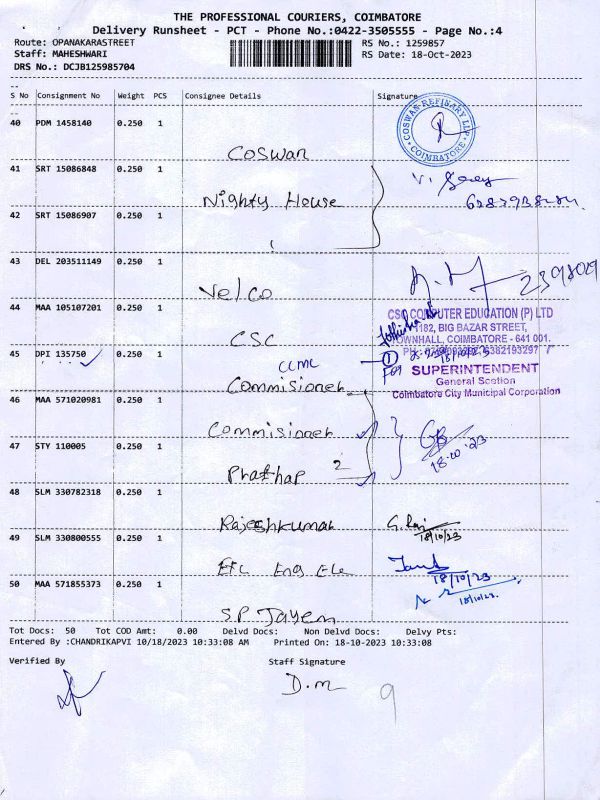 THE PROFESSIONAL COURIERS, COIMBATORE
Delivery Runsheet - PCT - Phone No.:0422-3505555 - Page No.:4
Route: OPANAKARASTREET RS No.: 1259857
Staff: MAHESHWARI RS Date: 18-Oct-2023
DRS No.: DCJB125985704
S No Consignment No Weight PCS Consignee Details Signature
40 PDM 1458140 0.250 1
COSWAN REFINARY LLP
COIMBATORE
Coswan
41 SRT 15086848 0.250 1
Nighty House
42 SRT 15086907 0.250 1
43 DEL 203511149 0.250 1
Velco
44 MAA 105107201 0.250 1
CSC
CSC COMPUTER EDUCATION (P) LTD
1182, BIG BAZAR STREET,
TOWNHALL, COIMBATORE - 641 001.
45 DPI 135750 0.250 1
CCMC
Commisioner
SUPERINTENDENT
General Section
Coimbatore City Municipal Corporation
46 MAA 571020981 0.250 1
Commisioner
18-10-23
47 STY 110005 0.250 1
Prathap 2
48 SLM 330782318 0.250 1
Rajeshkumar
18/10/23
49 SLM 330800555 0.250 1
Etc Eng Ele
18/10/23
50 MAA 571855373 0.250 1
18/10/23
S.P Jayem
Tot Docs: 50 Tot COD Amt: 0.00 Delvd Docs: Non Delvd Docs: Delvy Pts:
Entered By :CHANDRIKAPVI 10/18/2023 10:33:08 AM Printed On: 18-10-2023 10:33:08
Verified By Staff Signature
D.m
9